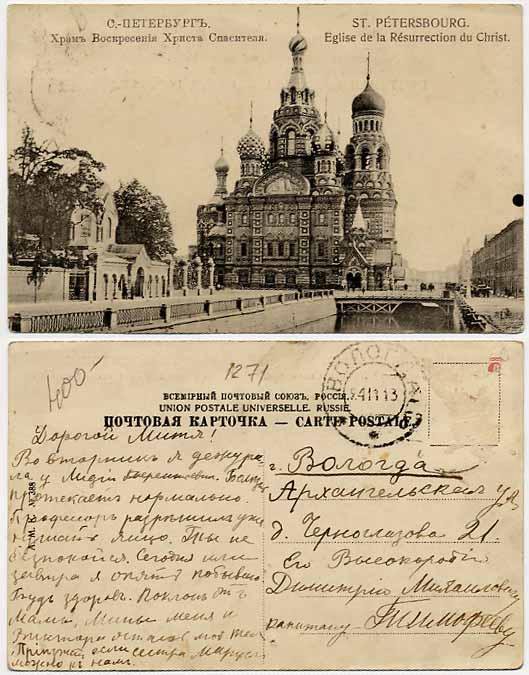 С.-ПЕТЕРБУРГЪ.
Храмъ Воскресенія Христа Спасителя.
ST. PÉTERSBOURG.
Eglise de la Résurrection du Christ.
400-
1271
ВСЕМІРНЫЙ ПОЧТОВЫЙ СОЮЗЪ. РОССІЯ.
UNION POSTALE UNIVERSELLE. RUSSIE.
ПОЧТОВАЯ КАРТОЧКА — CARTE POSTALE
ВОЛОГДА
Дорогой Митя!
Во вторникъ я дежурила
у Лидіи
протекаетъ нормально.
Профессоръ разрешилъ уже
Ты не
безпокойся. Сегодня или
завтра я опять побываю.
Будь здоровъ. Поклонъ отъ
Мамы, Мины меня и
Виктора
если сестра Маруся
можно къ намъ.
№ 388
г. Вологда
Архангельская ул.
д. Черноглазова 21.
Его Высокородію
Димитрію Михаиловичу
капитану Тимофееву